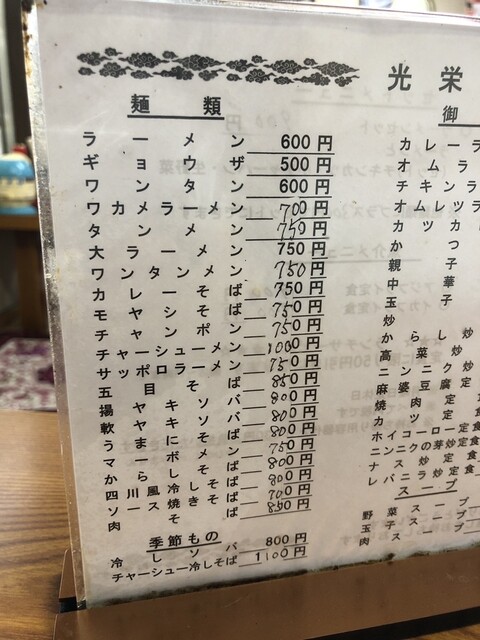 光栄
麺類
ラーメン 600円
ギョウザ 500円
ワンタン 600円
ワカメラーメン 700円
タンメン 750円
大ラーメン 750円
ワンタンメン 750円
カレーそば 750円
モヤシそば 750円
チャンポン 750円
チャーシューメン 1000円
サッポロラーメン 750円
五目そば 850円
揚ヤキソバ 800円
軟ヤキソバ 800円
うまにそば 800円
マーボメン 750円
からしそば 800円
四川風冷しそば 800円
ソース焼きそば 700円
肉そば 850円
季節もの
冷しソバ 800円
チャーシュー冷しそば 1100円
御
カレーラ
オムラ
チキンラ
オムレツラ
カツカ
かつ
親子
中華
玉子
炒
からし炒
高菜炒
ニンニク炒
麻婆豆腐定
焼肉定
カツ定
ホイコーロー定食
ニンニクの芽炒定食
ナス炒定食
レバニラ炒定食
スープ
野菜スープ
玉子スープ
肉スープ